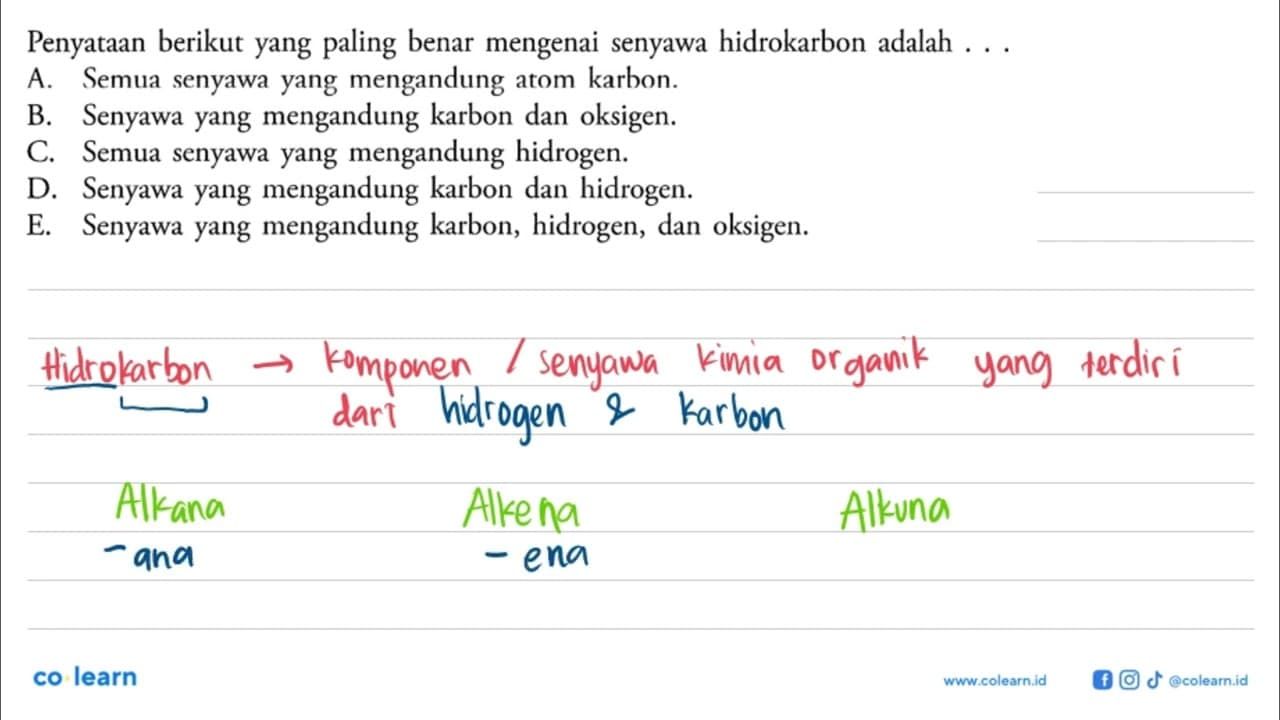 Penyataan berikut yang paling benar mengenai senyawa hidrokarbon adalah . . .
A. Semua senyawa yang mengandung atom karbon.
B. Senyawa yang mengandung karbon dan oksigen.
C. Semua senyawa yang mengandung hidrogen.
D. Senyawa yang mengandung karbon dan hidrogen.
E. Senyawa yang mengandung karbon, hidrogen, dan oksigen.
Hidrokarbon → komponen / senyawa kimia organik yang terdiri
dari hidrogen & karbon
Alkana Alkena Alkuna
- ana - ena
co learn www.colearn.id @colearn.id